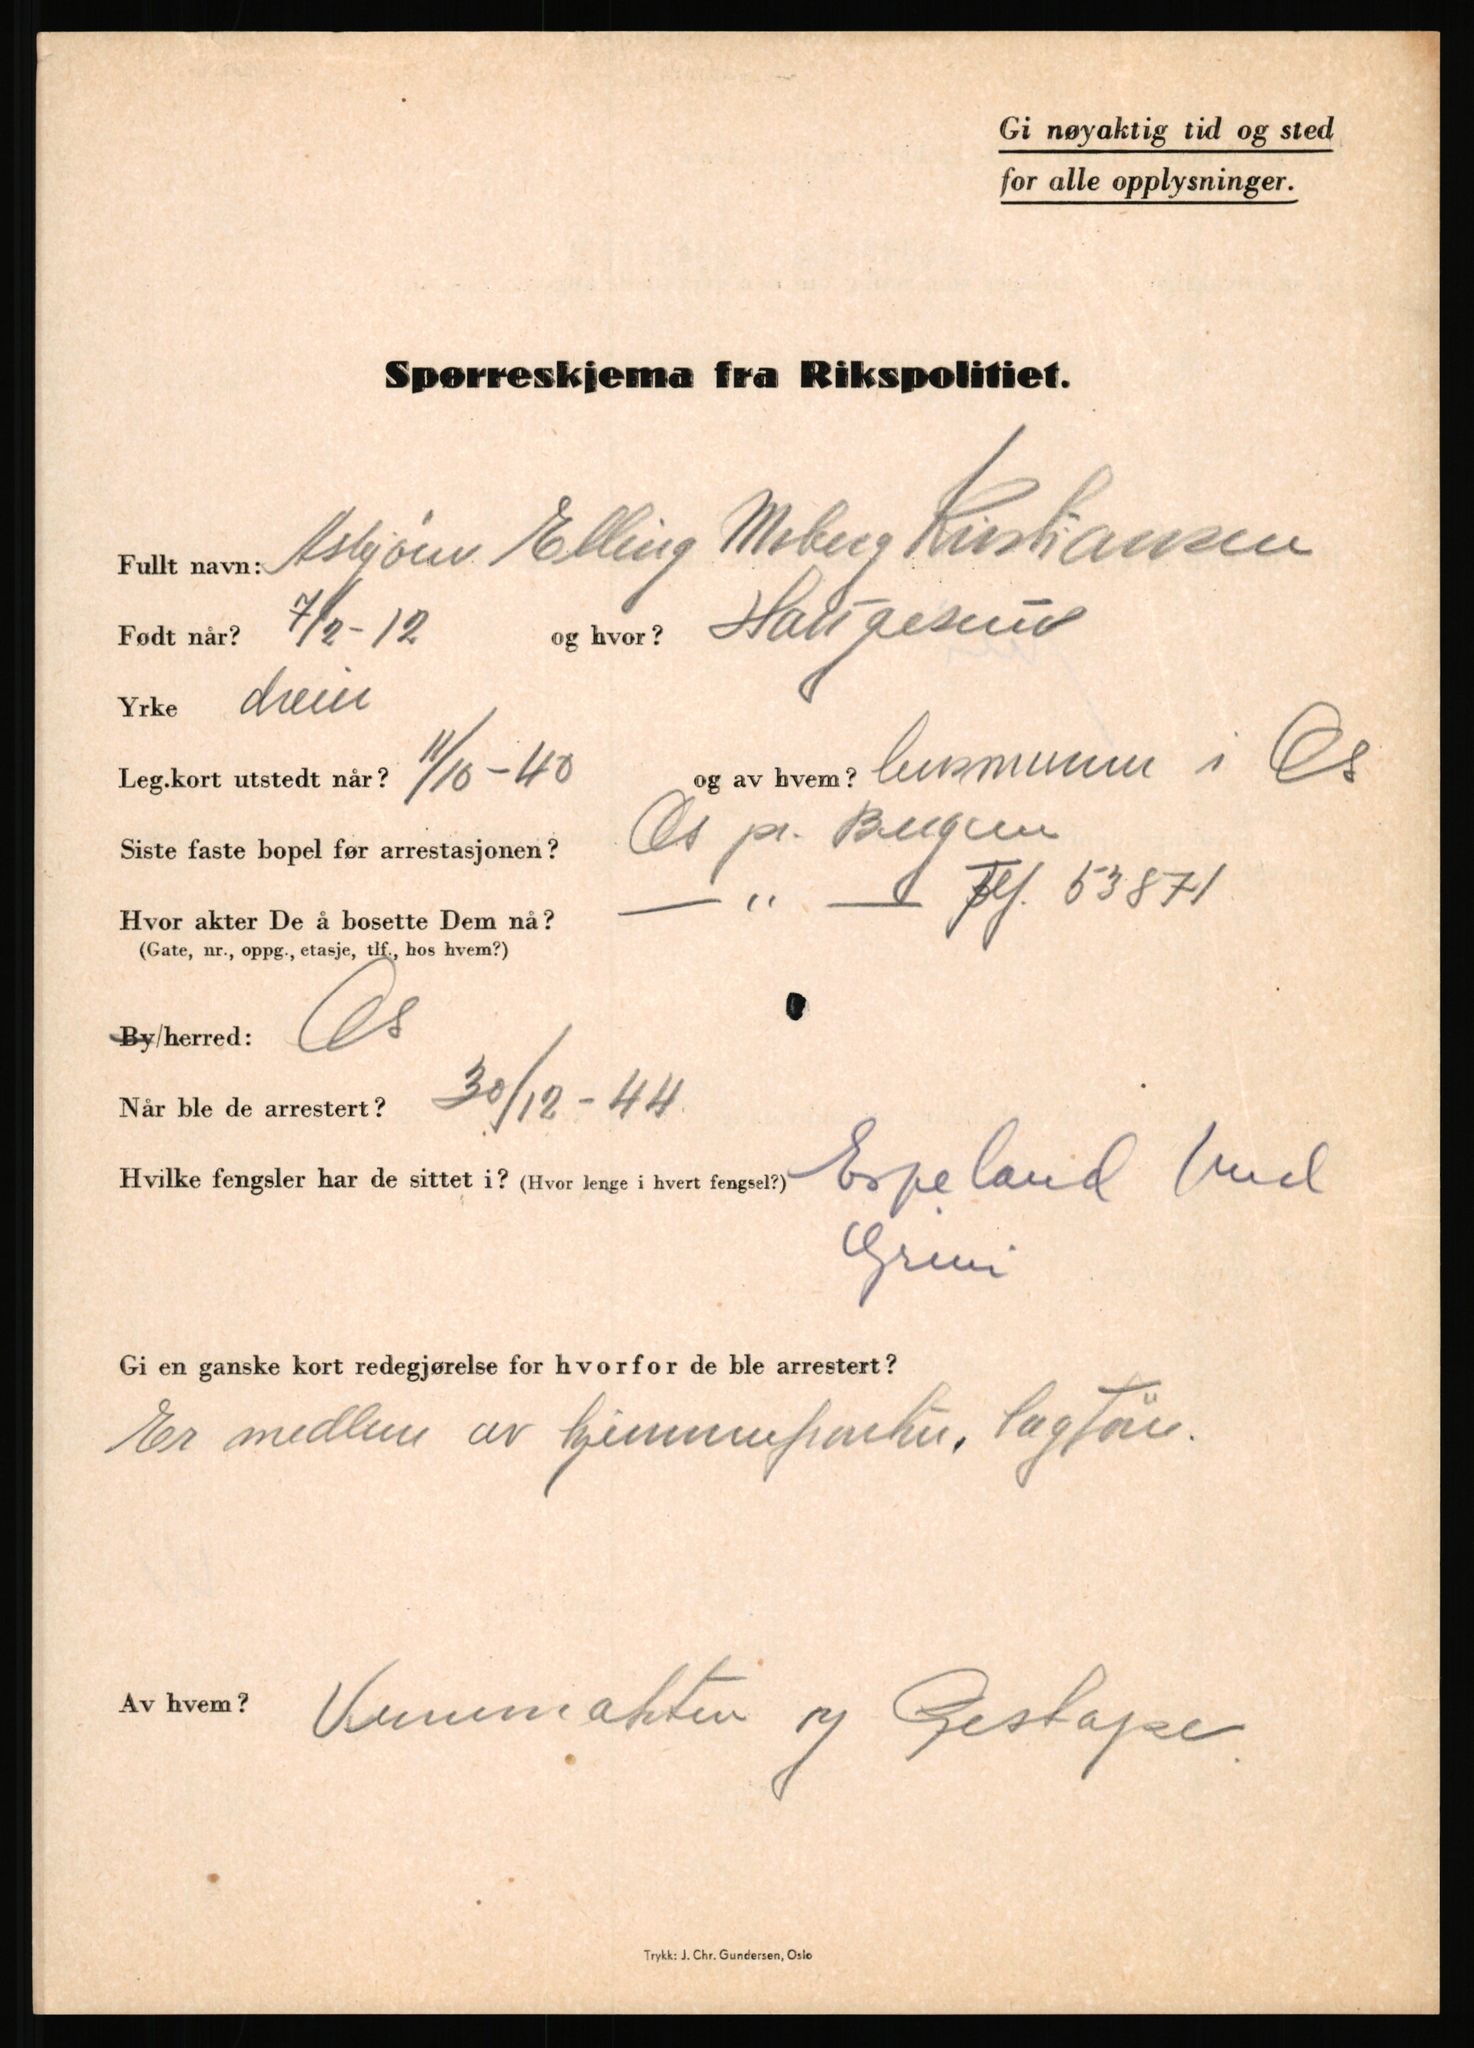 Gi nøyaktig tid og sted
for alle opplysninger.
Spørreskjema fra Rikspolitiet.
Fullt navn: Asbjørn Elling Moberg Kristiansen
Født når? 7/2-12 og hvor? Haugesund
Yrke dreier
Leg.kort utstedt når? 11/10-40 og av hvem? lensmannen i Os
Siste faste bopel før arrestasjonen? Os pr. Bergen
Hvor akter De å bosette Dem nå? — " — Tlf. 53871
(Gate, nr., oppg., etasje, tlf., hos hvem?)
By/herred: Os
Når ble de arrestert? 30/12-44
Hvilke fengsler har de sittet i? (Hvor lenge i hvert fengsel?) Espeland
Grini
Gi en ganske kort redegjørelse for hvorfor de ble arrestert?
Er medlem av hjemmefronten, lagfører.
Av hvem? Vermmakten og Gestapo.
Trykk: J. Chr. Gundersen, Oslo